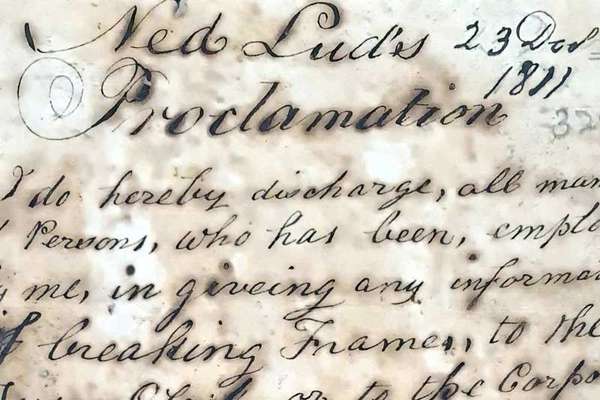 Ned Lud's 23 Decr
1811
Proclamation
I do hereby discharge, all man
Persons, who has been, emplo
me, in giveing any informa
of breaking Frames, to the
or to the Corpo